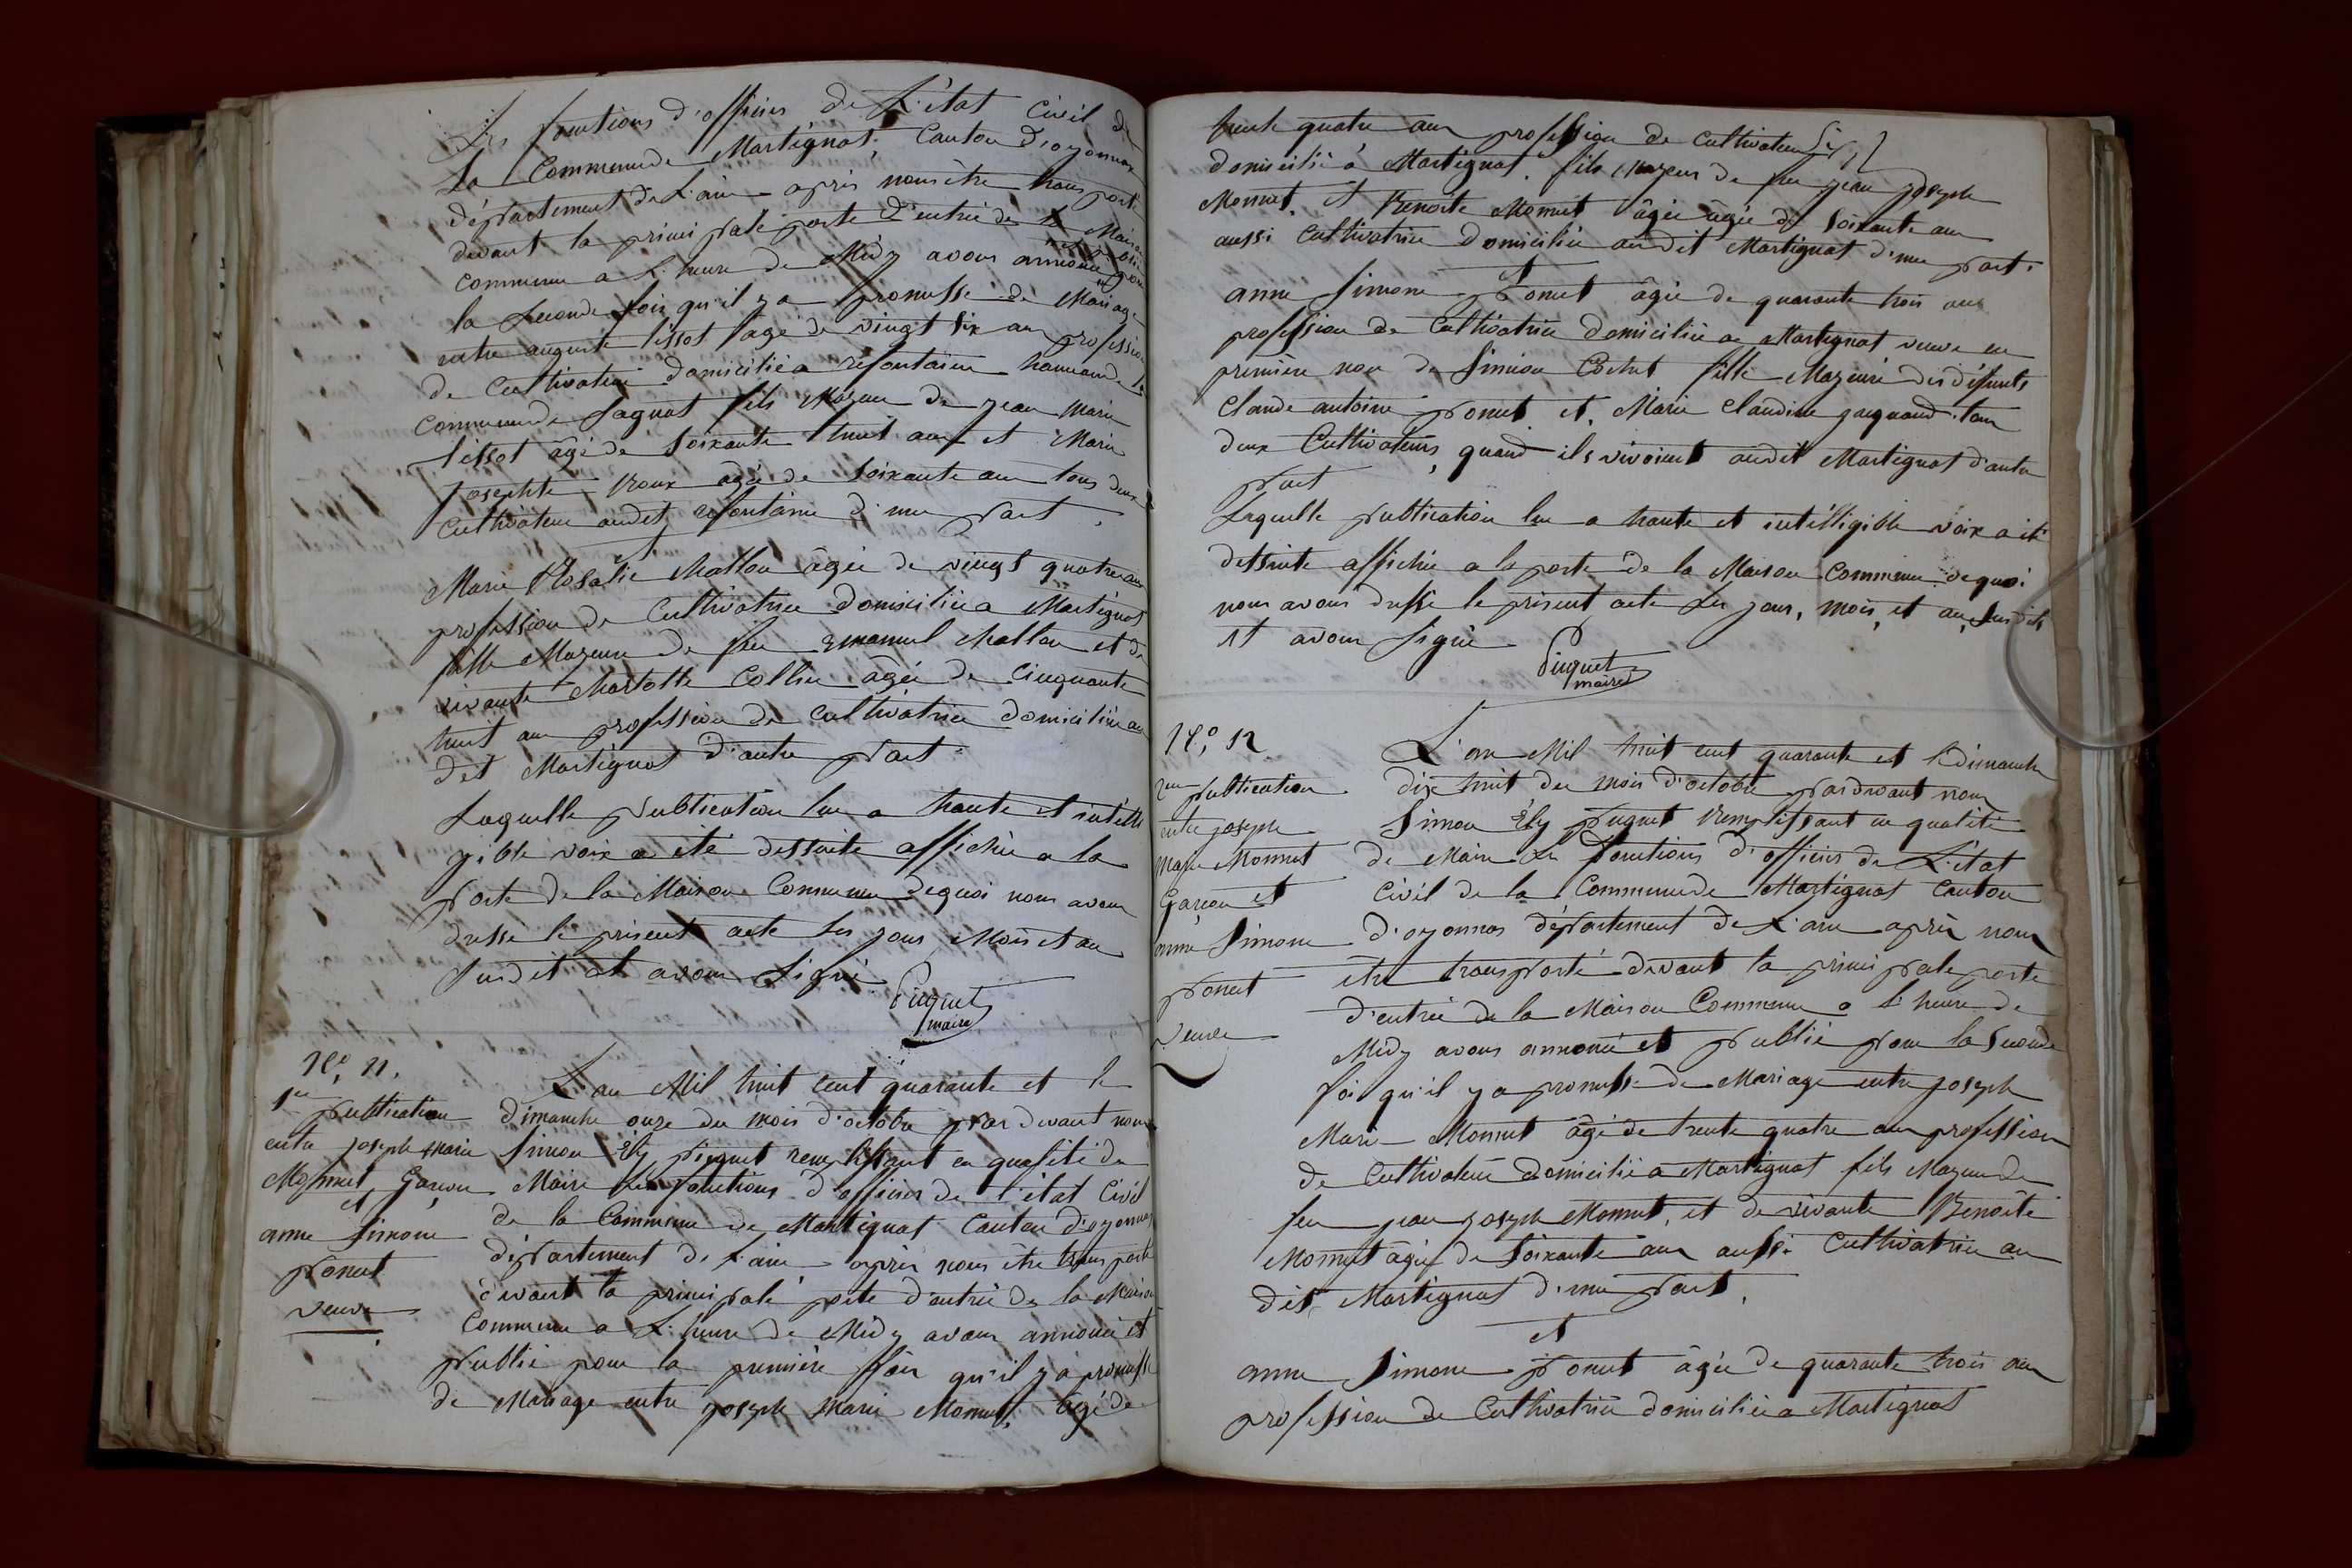 Les fonctions d'officier de L'état civil de
La Commune de Martignat, Canton D'oyonnax
département de L'ain après nous être transporté
devant la principale porte D'entrée de la Maison
commune a L'heure de Midy avons annoncé et publié pour
la seconde fois qu'il y a promesse de Mariage
entre auguste tissot agé de vingt six ans profession
de Cultivateur domicilié a
commune de fils Mageur de jean Marie
tissot âgé de soixante huit ans et Marie
josephte Roux agée de soixante ans tous deux
cultivateur audit d'une part,
et
Marie Rosalie Mathon âgée de vingt quatre ans
profession de Cultivatrice domiciliée a Martignat
fille Mageure de feu emanuel Mathon et de
vivante Collin âgée de Cinquante
huit ans profession de Cultivatrice domiciliée au
dit Martignat d'autre part
Laquelle publication lue a haute et intélli
gible voix a été dessuite affichée a la
porte de la Maison Commune dequoi nous avons
dressé le présent acte les jour, Mois et an
susdit et avons signé
Piquet
maire
N.o 11.
1ere
publication
entre joseph Marie
Monnet Garçon
et
anne Simone
ponet
veuve
L'an Mil huit cent quarante et le
dimanche onze du mois d'octobre pardevant nous
Simon Ély piquet remplissant en qualité de
Maire Les fonctions d'officier de l'état Civil
de la Commune de Martignat Canton d'oyonnax
département de L'ain après nous être transporté
dévant la principale porte d'entrée de la Maison
Commune a L'heure de Midy avons annoncé et
publié pour la première fois qu'il y a promesse
de Mariage entre joseph Marie Monnet, âgé de
trente quatre ans profession de cultivateur
domicilié à Martignat fils Mageur de feu jean joseph
Monnet, et Benoite Monnet âgée âgée de soixante ans
aussi Cultivatrice domiciliée audit Martignat d'une part.
et
anne Simone ponet âgée de quarante trois ans
profession de Cultivatrice domiciliée a Martignat veuve en
première nou de Simion Cochet fille Mageure des défunts
Claude antoine ponet et, Marie Claudine tous
deux Cultivateurs, quand ils vivoient audit Martignat d'autre
part
Laquelle publication lue a haute et intélligible voix a été
dessuite affichée a la porte de la Maison Commune dequoi
nous avons dressé le présent acte les jour, mois, et an, susdits
et avons signé
Piquet
maire
N.o 12
2me publication
entre joseph
Marie Monnet
Garçon et
anne Simone
ponet
veuve
L'an Mil huit cent quarante et le dimanche
dix huit du mois d'octobre pardevant nous
Simon Ély piquet Remplissant en qualité
de Maire Les fonctions d'officier de L'état
civil de la Commune de Martignat Canton
d'oyonnax département de L'ain après nous
être transporté devant la principale porte
d'entrée de la Maison Commune a l'heure de
Midy avons annoncé et publié pour la Seconde
foi qu'il y a promesse de Mariage entre joseph
Marie Monnet âgé de trente quatre ans profession
de Cultivateur domicilié a Martignat fils Mageur de
feu jean joseph Monnet, et de vivante Benoite
Monnet âgée de soixante ans aussi Cultivatrice au
dit, Martignat d'une part,
et
anne Simone ponet âgée de quarante trois ans
profession de Cultivatrice domiciliée a Martignat